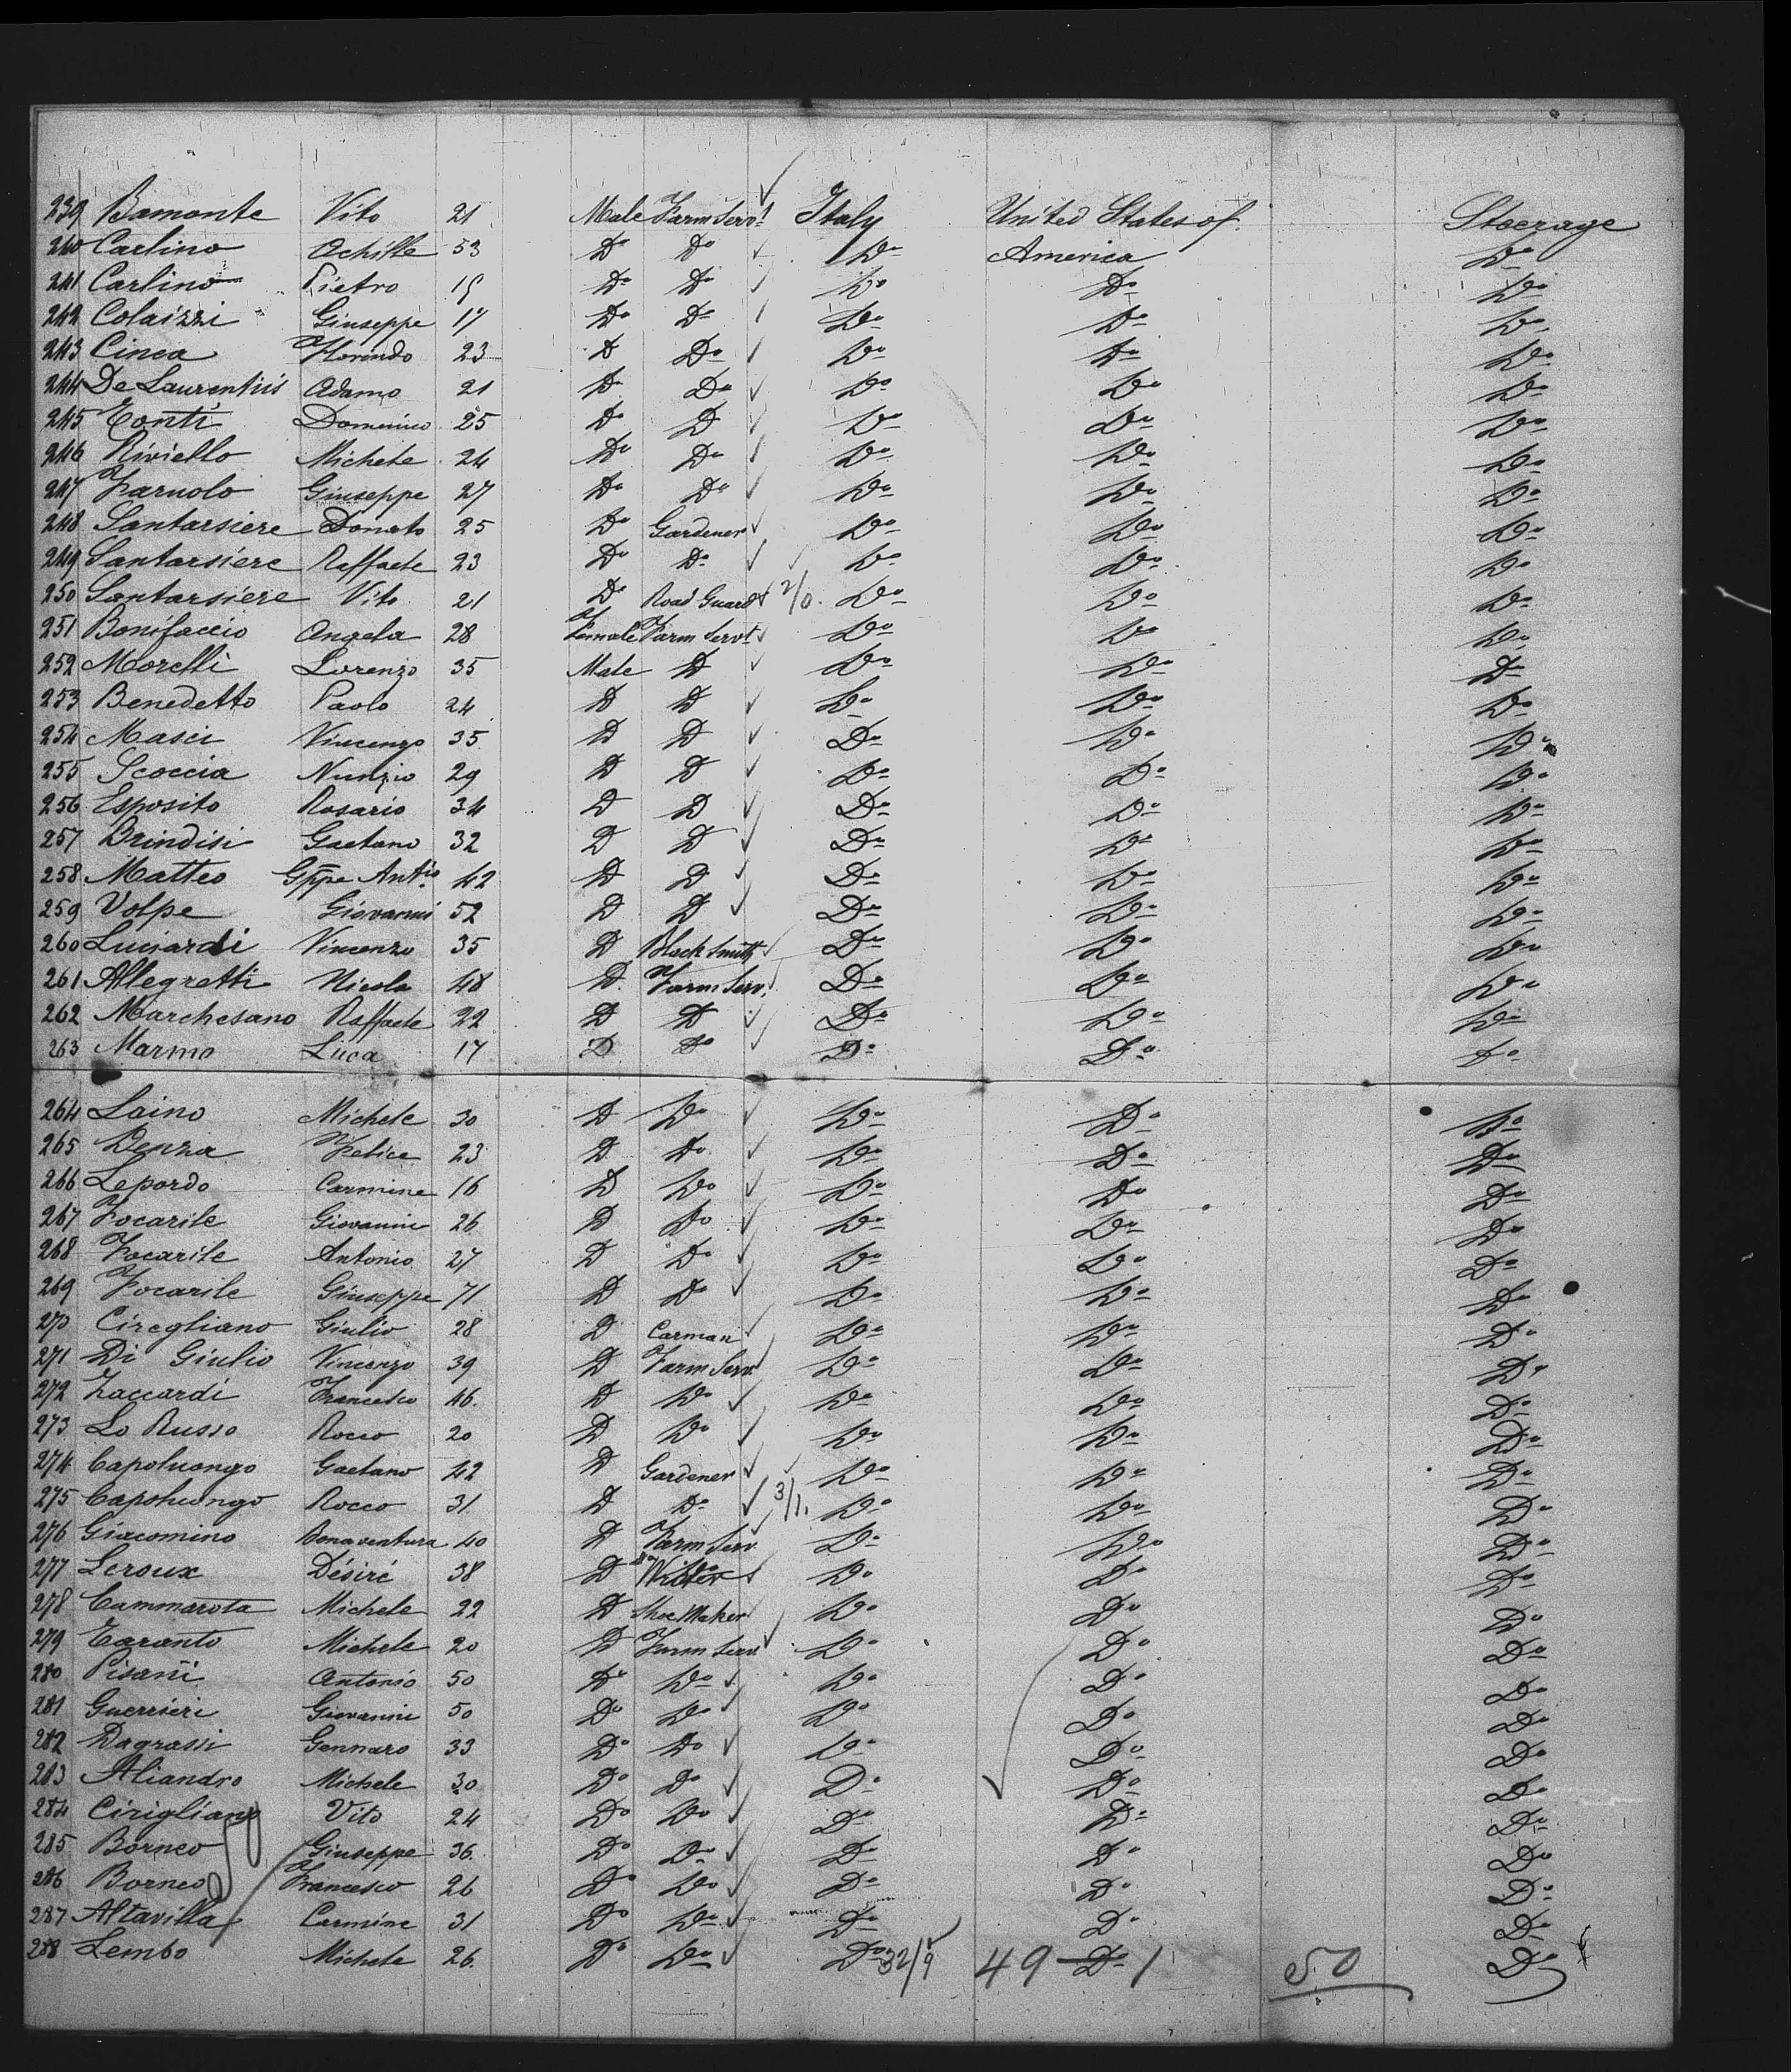 239 Bamonte Vito 21 Male Farm Servt Italy United States of Steerage
240 Carlino Achille 53 Do Do Do America Do
241 Carlino Pietro Do Do Do Do Do
242 Colaizzi Giuseppe 17 Do Do Do Do Do
243 Cinea Florindo 23 D Do Do Do Do
244 De Laurentiis Adamo 21 D Do Do Do Do
245 Conti Domenico 25 Do D Do Do Do
246 Riviello Michele 24 Do Do Do Do Do
247 Faruolo Giuseppe 27 Do Do Do Do Do
248 Santarsiere Donato 25 Do Gardener Do Do Do
249 Santarsiere Raffaele 23 Do Do Do Do Do
250 Santarsiere Vito 21 Do Road Guard 2/0. Do Do Do
251 Bonifaccio Angela 28 Female Farm Servt Do Do Do
252 Morelli Lorenzo 35 Male D Do Do Do
253 Benedetto Paolo 24 D D Do Do Do
254 Masci Vincenzo 35 D D Do Do Do
255 Scoccia Nunzio 29 D D Do Do Do
256 Esposito Rosario 34 D D Do Do Do
257 Brindisi Gaetano 32 D D Do Do Do
258 Matteo Gppe Antio 42 D D Do Do Do
259 Volpe Giovanni 52 D D Do Do Do
260 Luisardi Vincenzo 35 D Black Smith Do Do Do
261 Allegretti Nicola 48 D. Farm Serv. Do Do Do
262 Marchesano Raffaele 22 D D Do Do Do
263 Marmo Luca 17 D Do Do Do Do
264 Laino Michele 30 D Do Do Do Do
265 Denza Felice 23 D Do Do Do Do
266 Lepordo Carmine 16 D Do Do Do Do
267 Focarile Giovanni 26 D Do Do Do Do
268 Focarile Antonio 27 D Do Do Do Do
269 Focarile Giuseppe 71 D Do Do Do Do
270 Ciregliano Giulio 28 D Carman Do Do Do
271 Di Giulio Vincenzo 39 D Farm Serv. Do Do Do
272 Zaccardi Francesco 46. D Do Do Do Do
273 Lo Russo Rocco 20 D Do Do Do Do
274 Capoluongo Gaetano 42 D Gardener Do Do Do
275 Capoluongo Rocco 31 D Do 3/1. Do Do Do
276 Giacomino Bonaventura 40 D Farm Serv. Do Do Do
277 Leroux Désiré 38 D Do Do Do
278 Cammarota Michele 22 D Shoe Maker Do Do Do
279 Taranto Michele 20 D Farm Serv. Do Do Do
280 Pisani Antonio 50 Do Do Do Do Do
281 Guerrieri Giovanni 50 Do Do Do Do Do
282 Dagrassi Gennaro 33 Do Do Do Do Do
283 Aliandro Michele 30 Do Do Do Do Do
284 Cirigliano Vito 24 Do Do Do Do Do
285 Borneo Giuseppe 36. Do Do Do Do Do
286 Borneo Francesco 26 Do Do Do Do Do
287 Altavilla Carmine 31 Do Do Do Do Do
288 Lembo Michele 26. Do Do Do 32/9 49 Do 1 50 Do